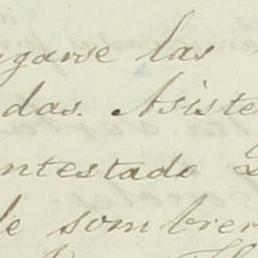 garse las
das. Asiste
ntestado
de sombrer